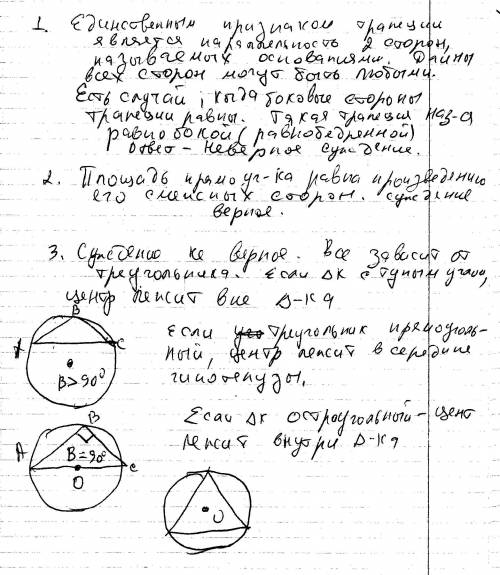 1. Единственным признаком трапеции
является параллельность 2 сторон,
называемых основаниями. Длины
всех сторон могут быть любыми.
Есть случай, когда боковые стороны
трапеции равны. Такая трапеция наз-ся
равнобокой (равнобедренной)
ответ - неверное суждение.
2. Площадь прямоуг-ка равна произведению
его смежных сторон. суждение
верное.
3. Суждение не верное. Все зависит от
треугольника. если Δк с тупым углом,
центр лежит вне Δ-ка
B
A
C
B>90°
Если треугольник прямоуголь-
ный, центр лежит в середине
гипотенузы.
B
A
B=90°
C
O
Если Δк остроугольный - цент
лежит внутри Δ-ка
O